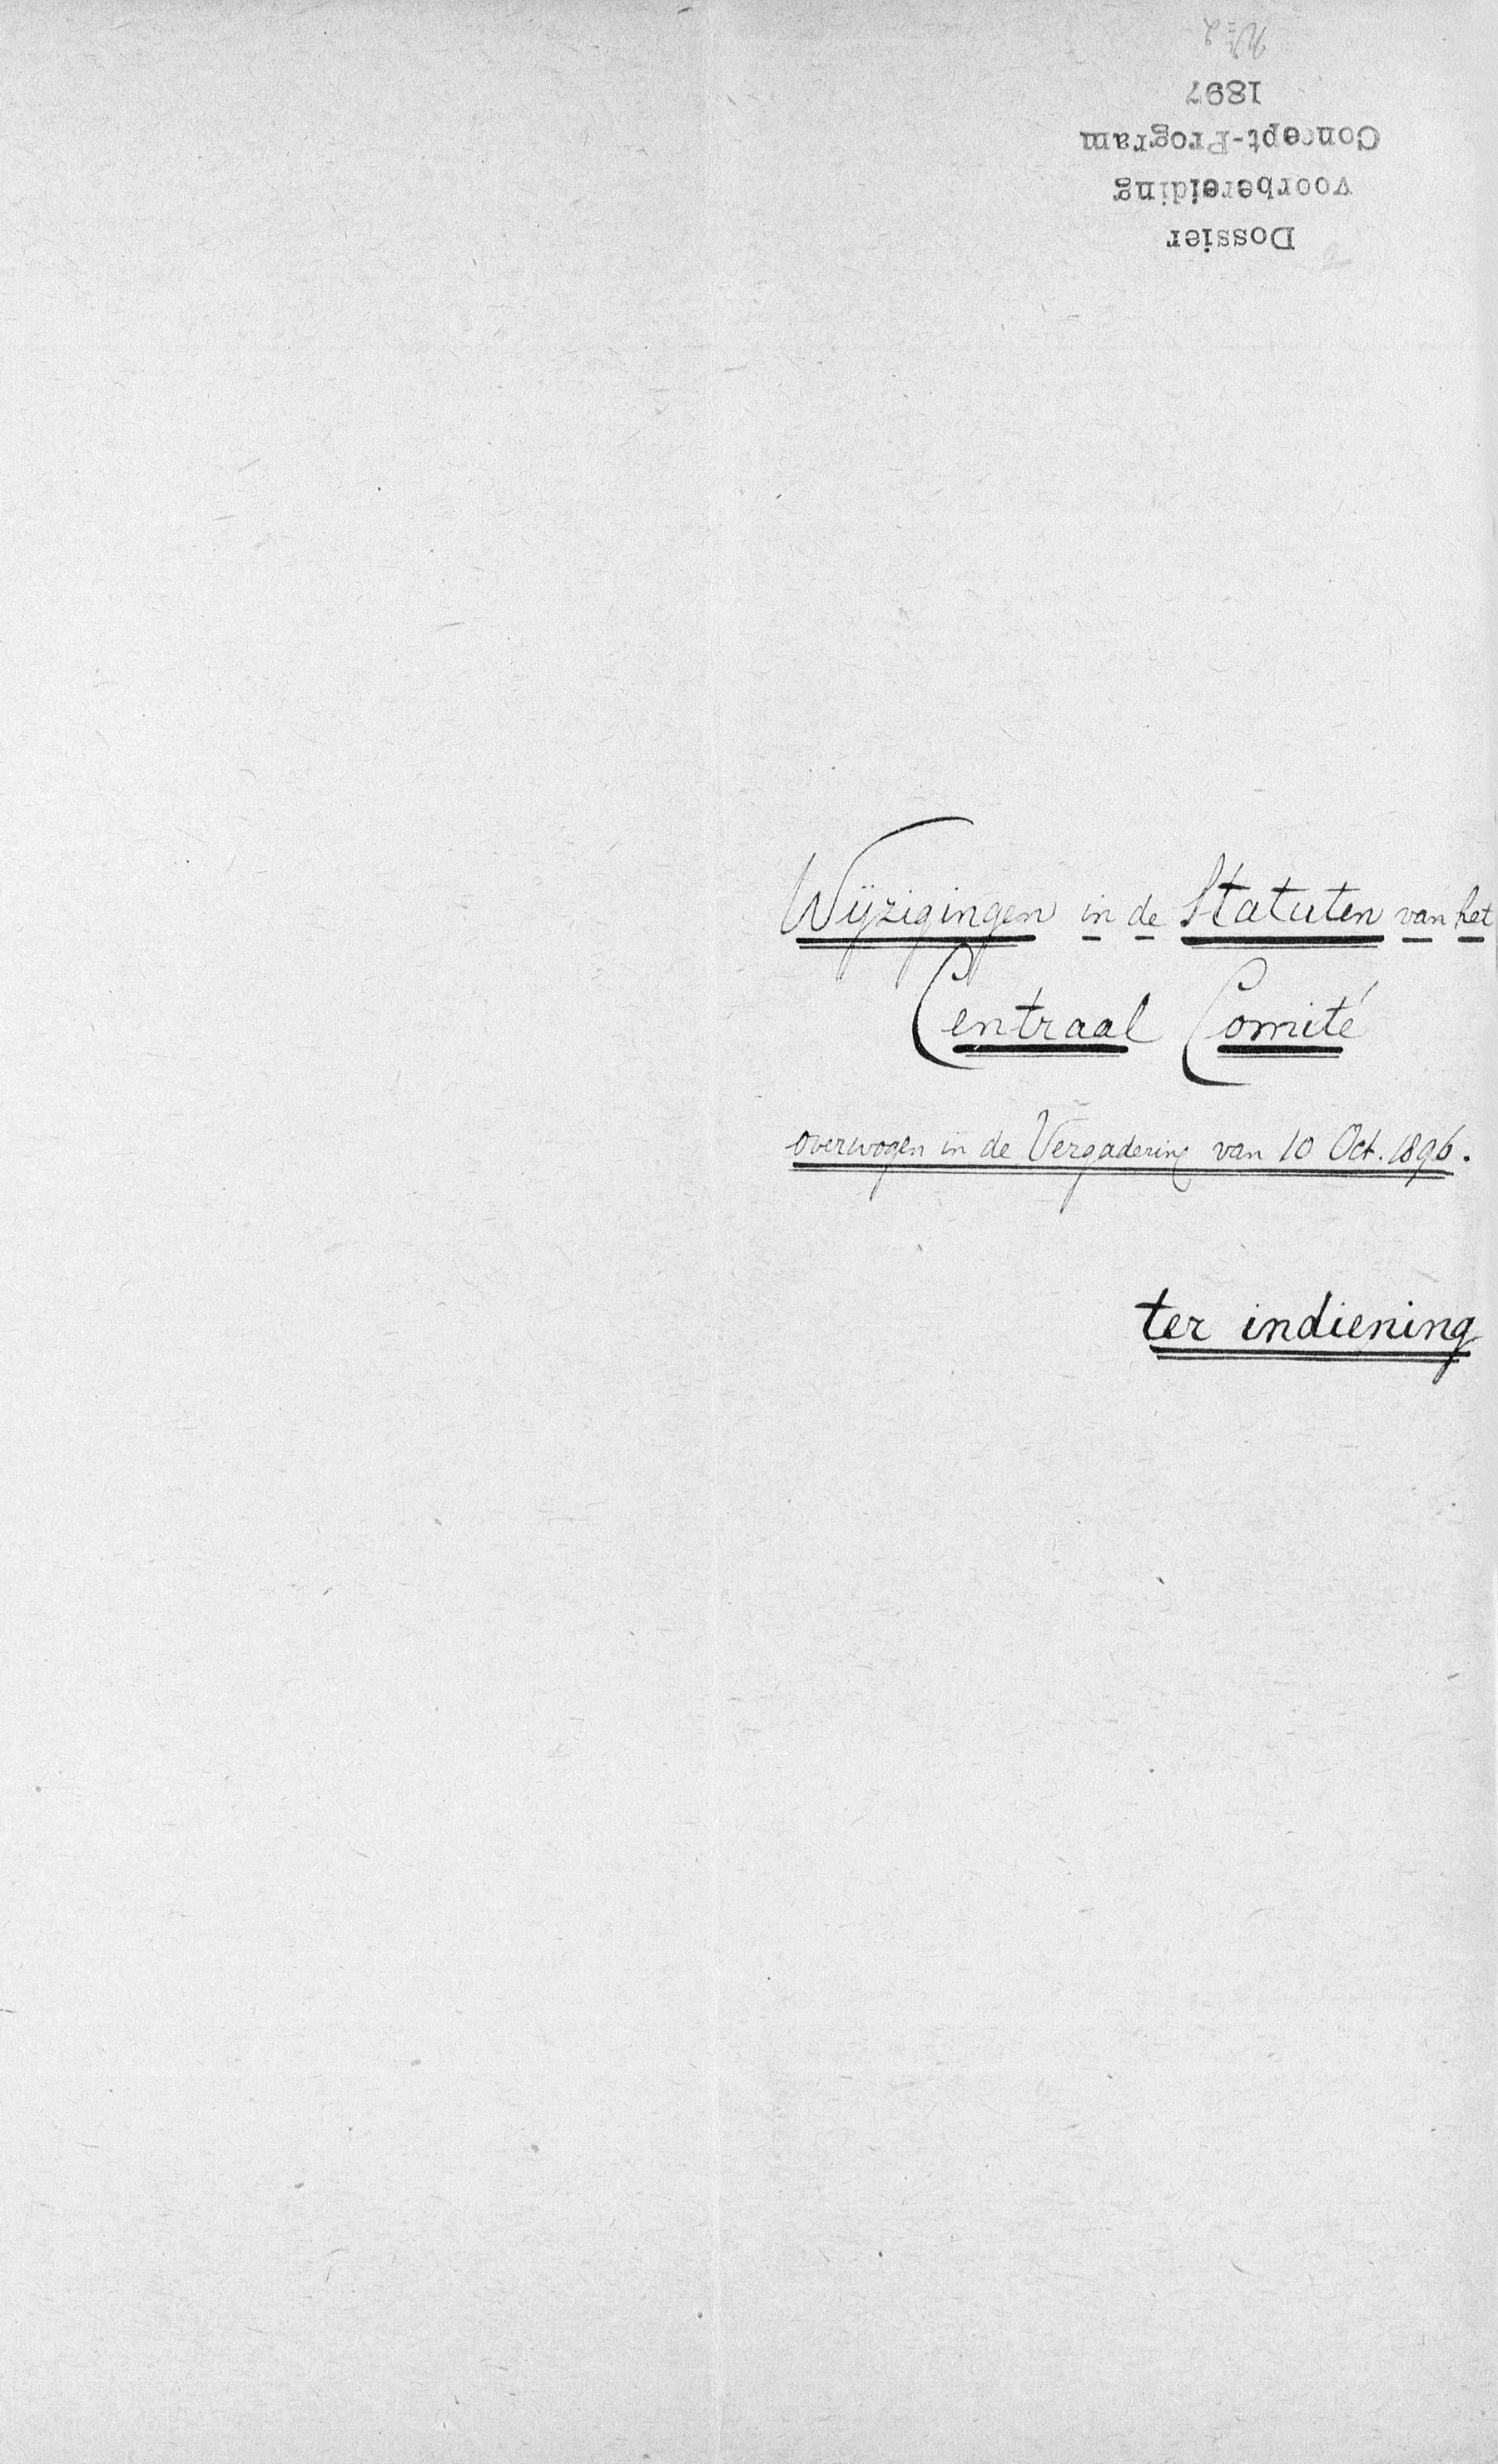 Dossier
voorbereiding
Concept-Program
1897
Wijzigingen in de Statuten van het
Centraal Comité
overwogen in de Vergadering van 10 Oct. 1896.
ter indiening